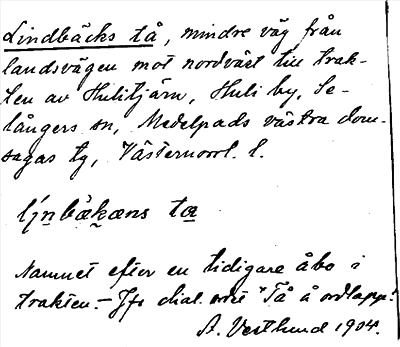 Lindbäcks tå, mindre väg från
landsvägen mot nordväst till trak-
ten av Hulitjärn, Huli by, Se-
långers sn, Medelpads västra dom-
sagas tg, Västernorrl. l.
ta
Namnet efter en tidigare åbo i
trakten. – Jfr dial. ordet Tå å ordlapp!
A. Vestlund 1904.